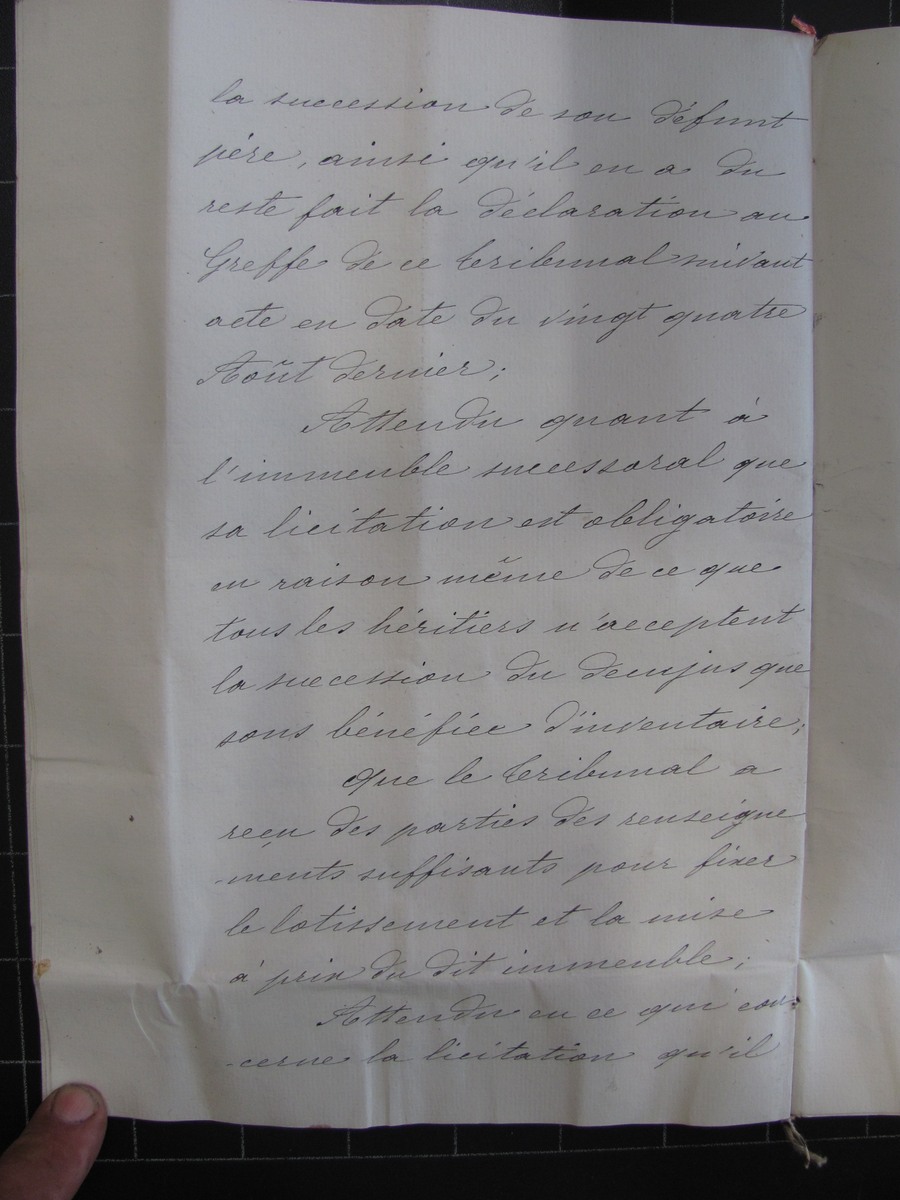 la succession de son défunt
père, ainsi qu'il en a du
reste fait la déclaration au
Greffe de ce tribunal suivant
acte en date du vingt quatre
Août dernier;
Attendu quant à
l'immeuble successoral que
sa licitation est obligatoire
en raison même de ce que
tous les héritiers n'acceptent
la succession du decujus que
sous bénéfice d'inventaire;
que le tribunal a
reçu des parties des renseigne
-ments suffisants pour fixer
le lotissement et la mise
à prix du dit immeuble;
Attendu en ce qui con-
-cerne la licitation qu'il